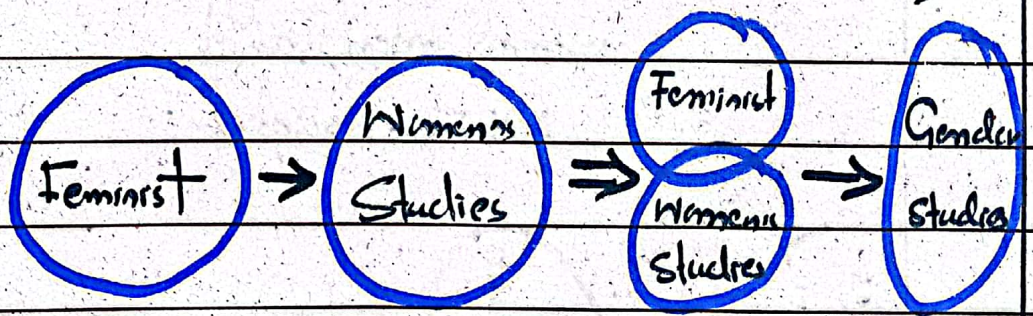 Feminist
Womens
Studies
Feminist
Womens
Studies
Gender
Studies